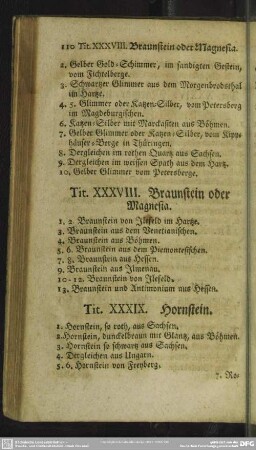 110 Tit. XXXVIII. Braunstein oder Magnesia.
2. Gelber Gold-Schimmer, im sandigten Gestein,
vom Fichtelberge.
3. Schwartzer Glimmer aus dem Morgenbrodsthal
im Hartze.
4. 5. Glimmer oder Katzen-Silber, vom Petersberg
im Magdeburgischen.
6. Katzen-Silber mit Marcasiten aus Böhmen.
7. Gelber Glimmer oder Katzen-Silber, vom Kipp-
häuser-Berge in Thüringen.
8. Dergleichen im rothen Quartz aus Sachsen.
9. Dergleichen im weissen Spath aus dem Hartz.
10. Gelber Glimmer vom Petersberge.
Tit. XXXVIII. Braunstein oder
Magnesia.
1. 2. Braunstein von Ilefeld im Hartze.
3. Braunstein aus dem Venetianischen.
4. Braunstein aus Böhmen.
5. 6. Braunstein aus dem Piemontesischen.
7. 8. Braunstein aus Hessen.
9. Braunstein aus Ilmenau.
10-12. Braunstein von Ilefeld.
13. Braunstein und Antimonium aus Hessen.
Tit. XXXIX. Hornstein.
1. Hornstein, so roth, aus Sachsen.
2. Hornstein, dunckelbraun mit Glantz, aus Böhmen.
3. Hornstein so schwartz aus Sachsen.
4. Dergleichen aus Ungarn.
5. 6. Hornstein von Freyberg.
7. Ro-